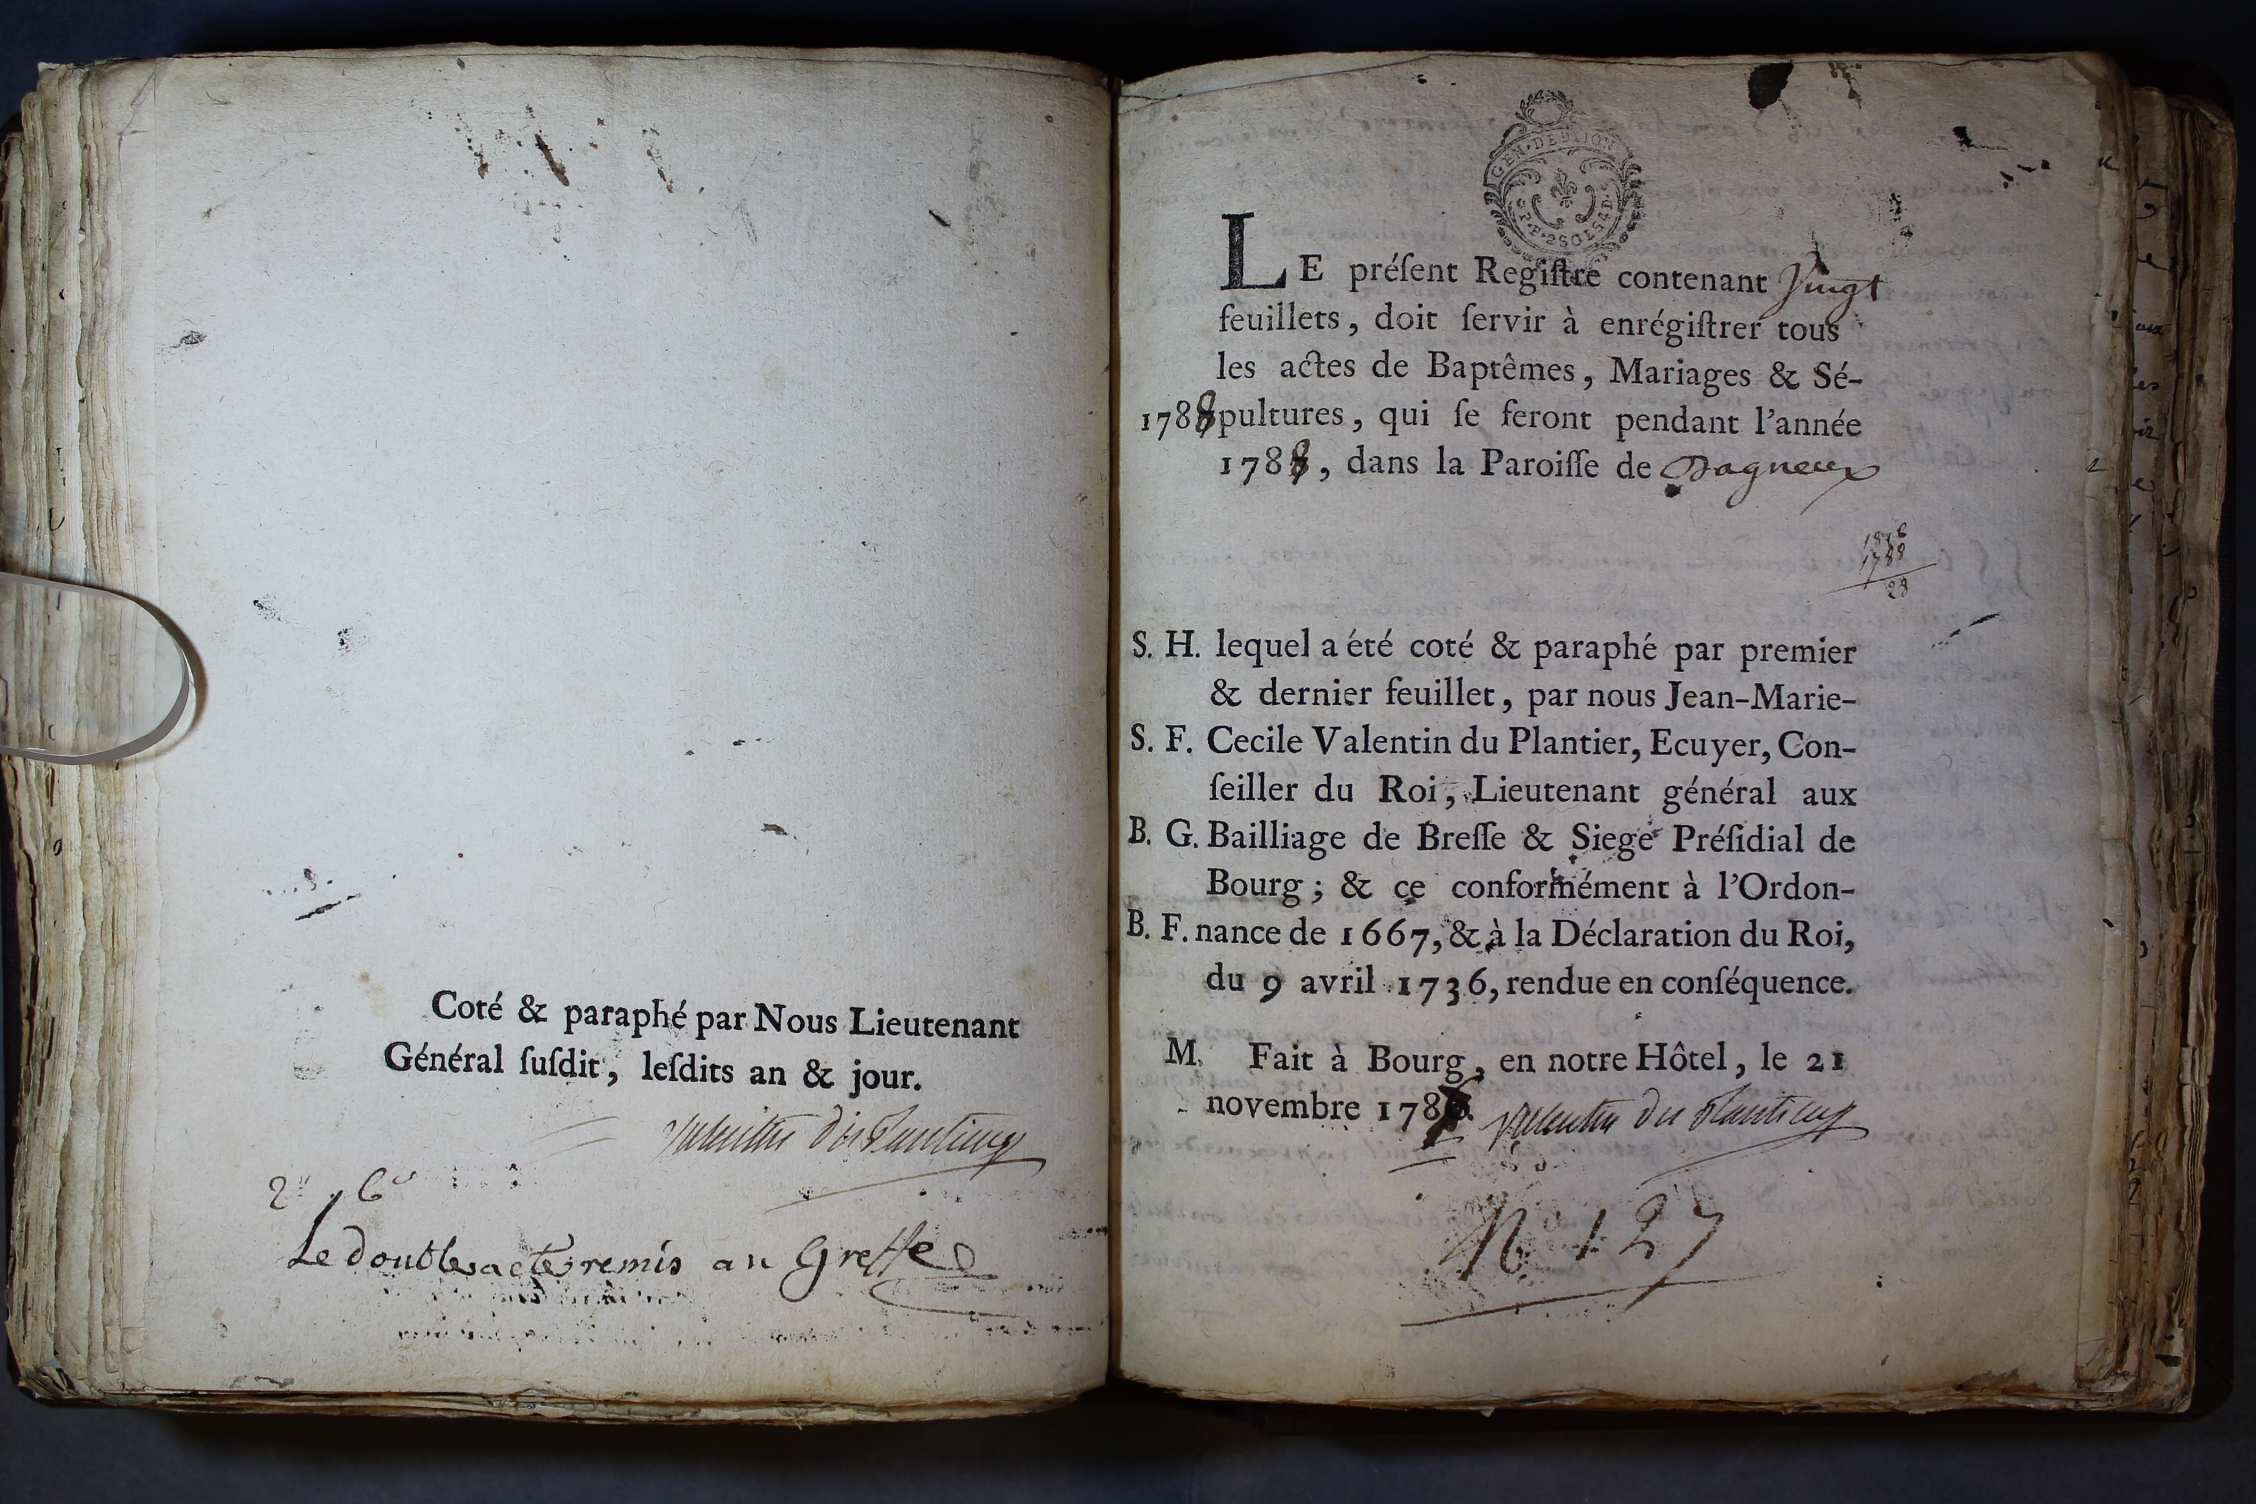 Coté & paraphé par Nous Lieutenant
Général ſuſdit, leſdits an & jour.
Valentin du Plantier
2e 6e
Le double acte remis au Greffe
GEN·DE DIJON
G.P.P. 2 SOLS 4 D.
LE préſent Regiſtre contenant Vingt
feuillets, doit ſervir à enrégiſtrer tous
les actes de Baptêmes, Mariages & Sé-
1788 pultures, qui ſe feront pendant l'année
1788, dans la Paroiſſe de Dagneux
1816
1788
28
S. H. lequel a été coté & paraphé par premier
& dernier feuillet, par nous Jean-Marie-
S. F. Cecile Valentin du Plantier, Ecuyer, Con-
ſeiller du Roi, Lieutenant général aux
B. G. Bailliage de Breſſe & Siege Préſidial de
Bourg; & ce conformément à l'Ordon-
B. F. nance de 1667, & à la Déclaration du Roi,
du 9 avril 1736, rendue en conſéquence.
M. Fait à Bourg, en notre Hôtel, le 21
novembre 1787. Valentin du Plantier
No 127